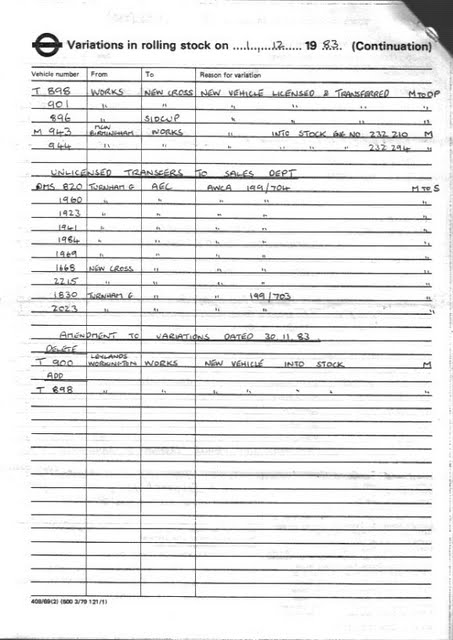 Variations in rolling stock on ....1....12..... 19 83. (Continuation)
Vehicle number From To Reason for variation
T 898 WORKS NEW CROSS NEW VEHICLE LICENSED & TRANSFERRED M TO OP
901 " " " " " "
896 " SIDCUP " " " "
M 943 NEW BIRMINGHAM WORKS " INTO STOCK ENG NO 232 210 M
944 " " " " " " 232 294 "
UNLICENSED TRANSFERS TO SALES DEPT
DMS 820 TURNHAM G AEC AWCA 199/704 M TO S
1960 " " " " "
1923 " " " " "
1941 " " " " "
1984 " " " " "
1969 " " " " "
1668 NEW CROSS " " " "
2215 " " " " "
1830 TURNHAM G " " 199/703 "
2023 " " " " "
AMENDMENT TO VARIATIONS DATED 30.11.83
DELETE
T 900 LEYLANDS WORKINGTON WORKS NEW VEHICLE INTO STOCK M
ADD
T 898 " " " " " " "